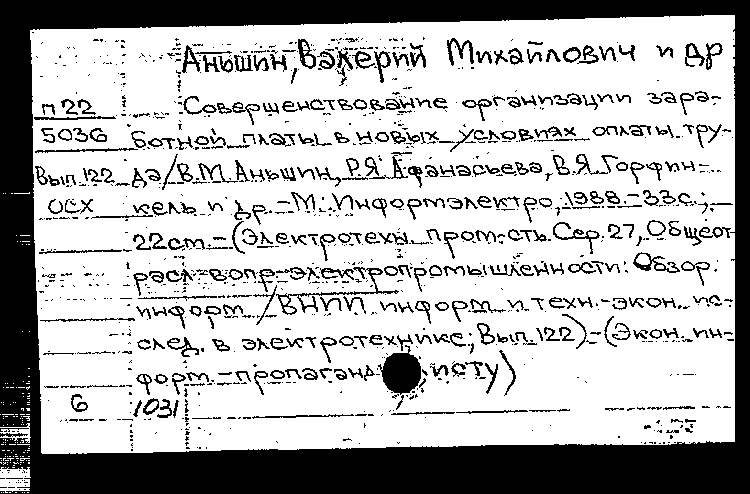 Аньшин, Валерий Михайлович и др
П22 Совершенствование организации зара-
5036 ботной платы в новых условиях оплаты тру-
Вып.122 да/В.М. Аньшин, Р.Я. Афанасьева, В.Я. Горфин-
ОСХ кель и др.-М.: Информэлектро, 1988.-33с.;
22см.-(Электротехн. пром-сть. Сер. 27, Общеот
расл-вопр-электропромышленности: Обзор.
информ/ВНИИ информ. и техн.-экон. ис-
след. в электротехнике; Вып. 122)-(Экон. ин-
форм.-пропаганд исту)
6 1031